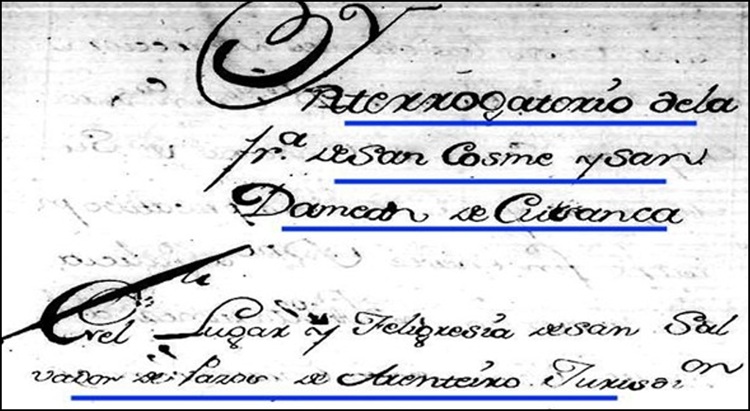 Ynterrogatorio dela
fr.ª de San Cosme y San
Damean de Cusanca
Enel Lugar y Feligresia de San Sal
vador de Pazos de Arenteiro Jurisdi on